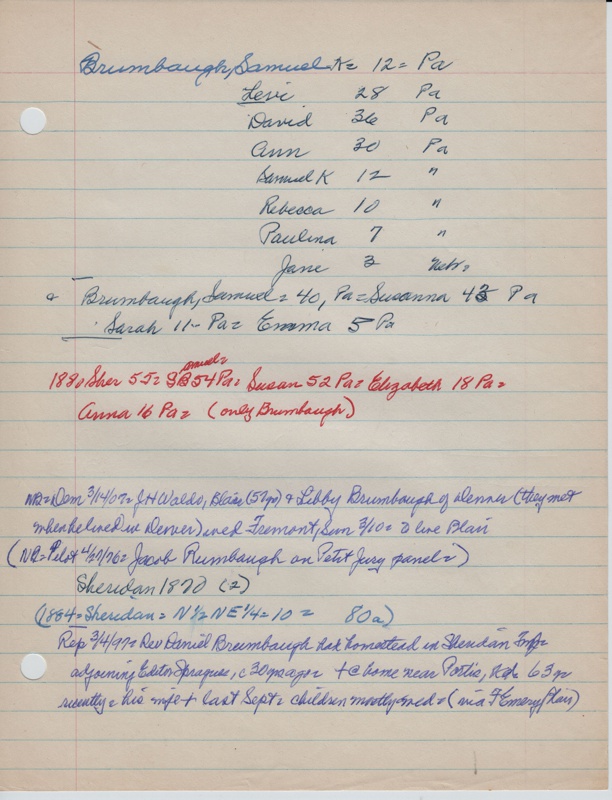 Brumbaugh, Samuel K= 12= Pa
Levi 28 Pa
David 36 Pa
Ann 30 Pa
Samuel K 12 "
Rebecca 10 "
Paulina 7 "
Jane 3 Nebr=
Brumbaugh, Samuel= 40, Pa= Susanna 43 Pa
Sarah 11- Pa= Emma 5 Pa
1880 Sher 55= Samuel= 54 Pa= Susan 52 Pa= Elizabeth 18 Pa=
Anna 16 Pa= (only Brumbaugh)
NB= Dem 3/14/07= J H Waldo, Blair (57 yr) & Libby Brumbaugh of Denver (they met
when he lived in Denver) wed Fremont, Sun 3/10= to live Blair
(NB= Pilot 4/27/76= Jacob Rumbaugh on Petit Jury panel=)
Sheridan 1870 (2)
(1884= Sheridan= N 1/2 NE 1/4= 10= 80a)
Rep 3/4/97= Rev Daniel Brumbaugh had homestead in Sheridan Twp=
adjoining Editor Sprague, c 30 yrs ago= + @ home near Portis, 63 yr
recently= his wife + last Sept= children mostly wed= (via F Emery/Blair)